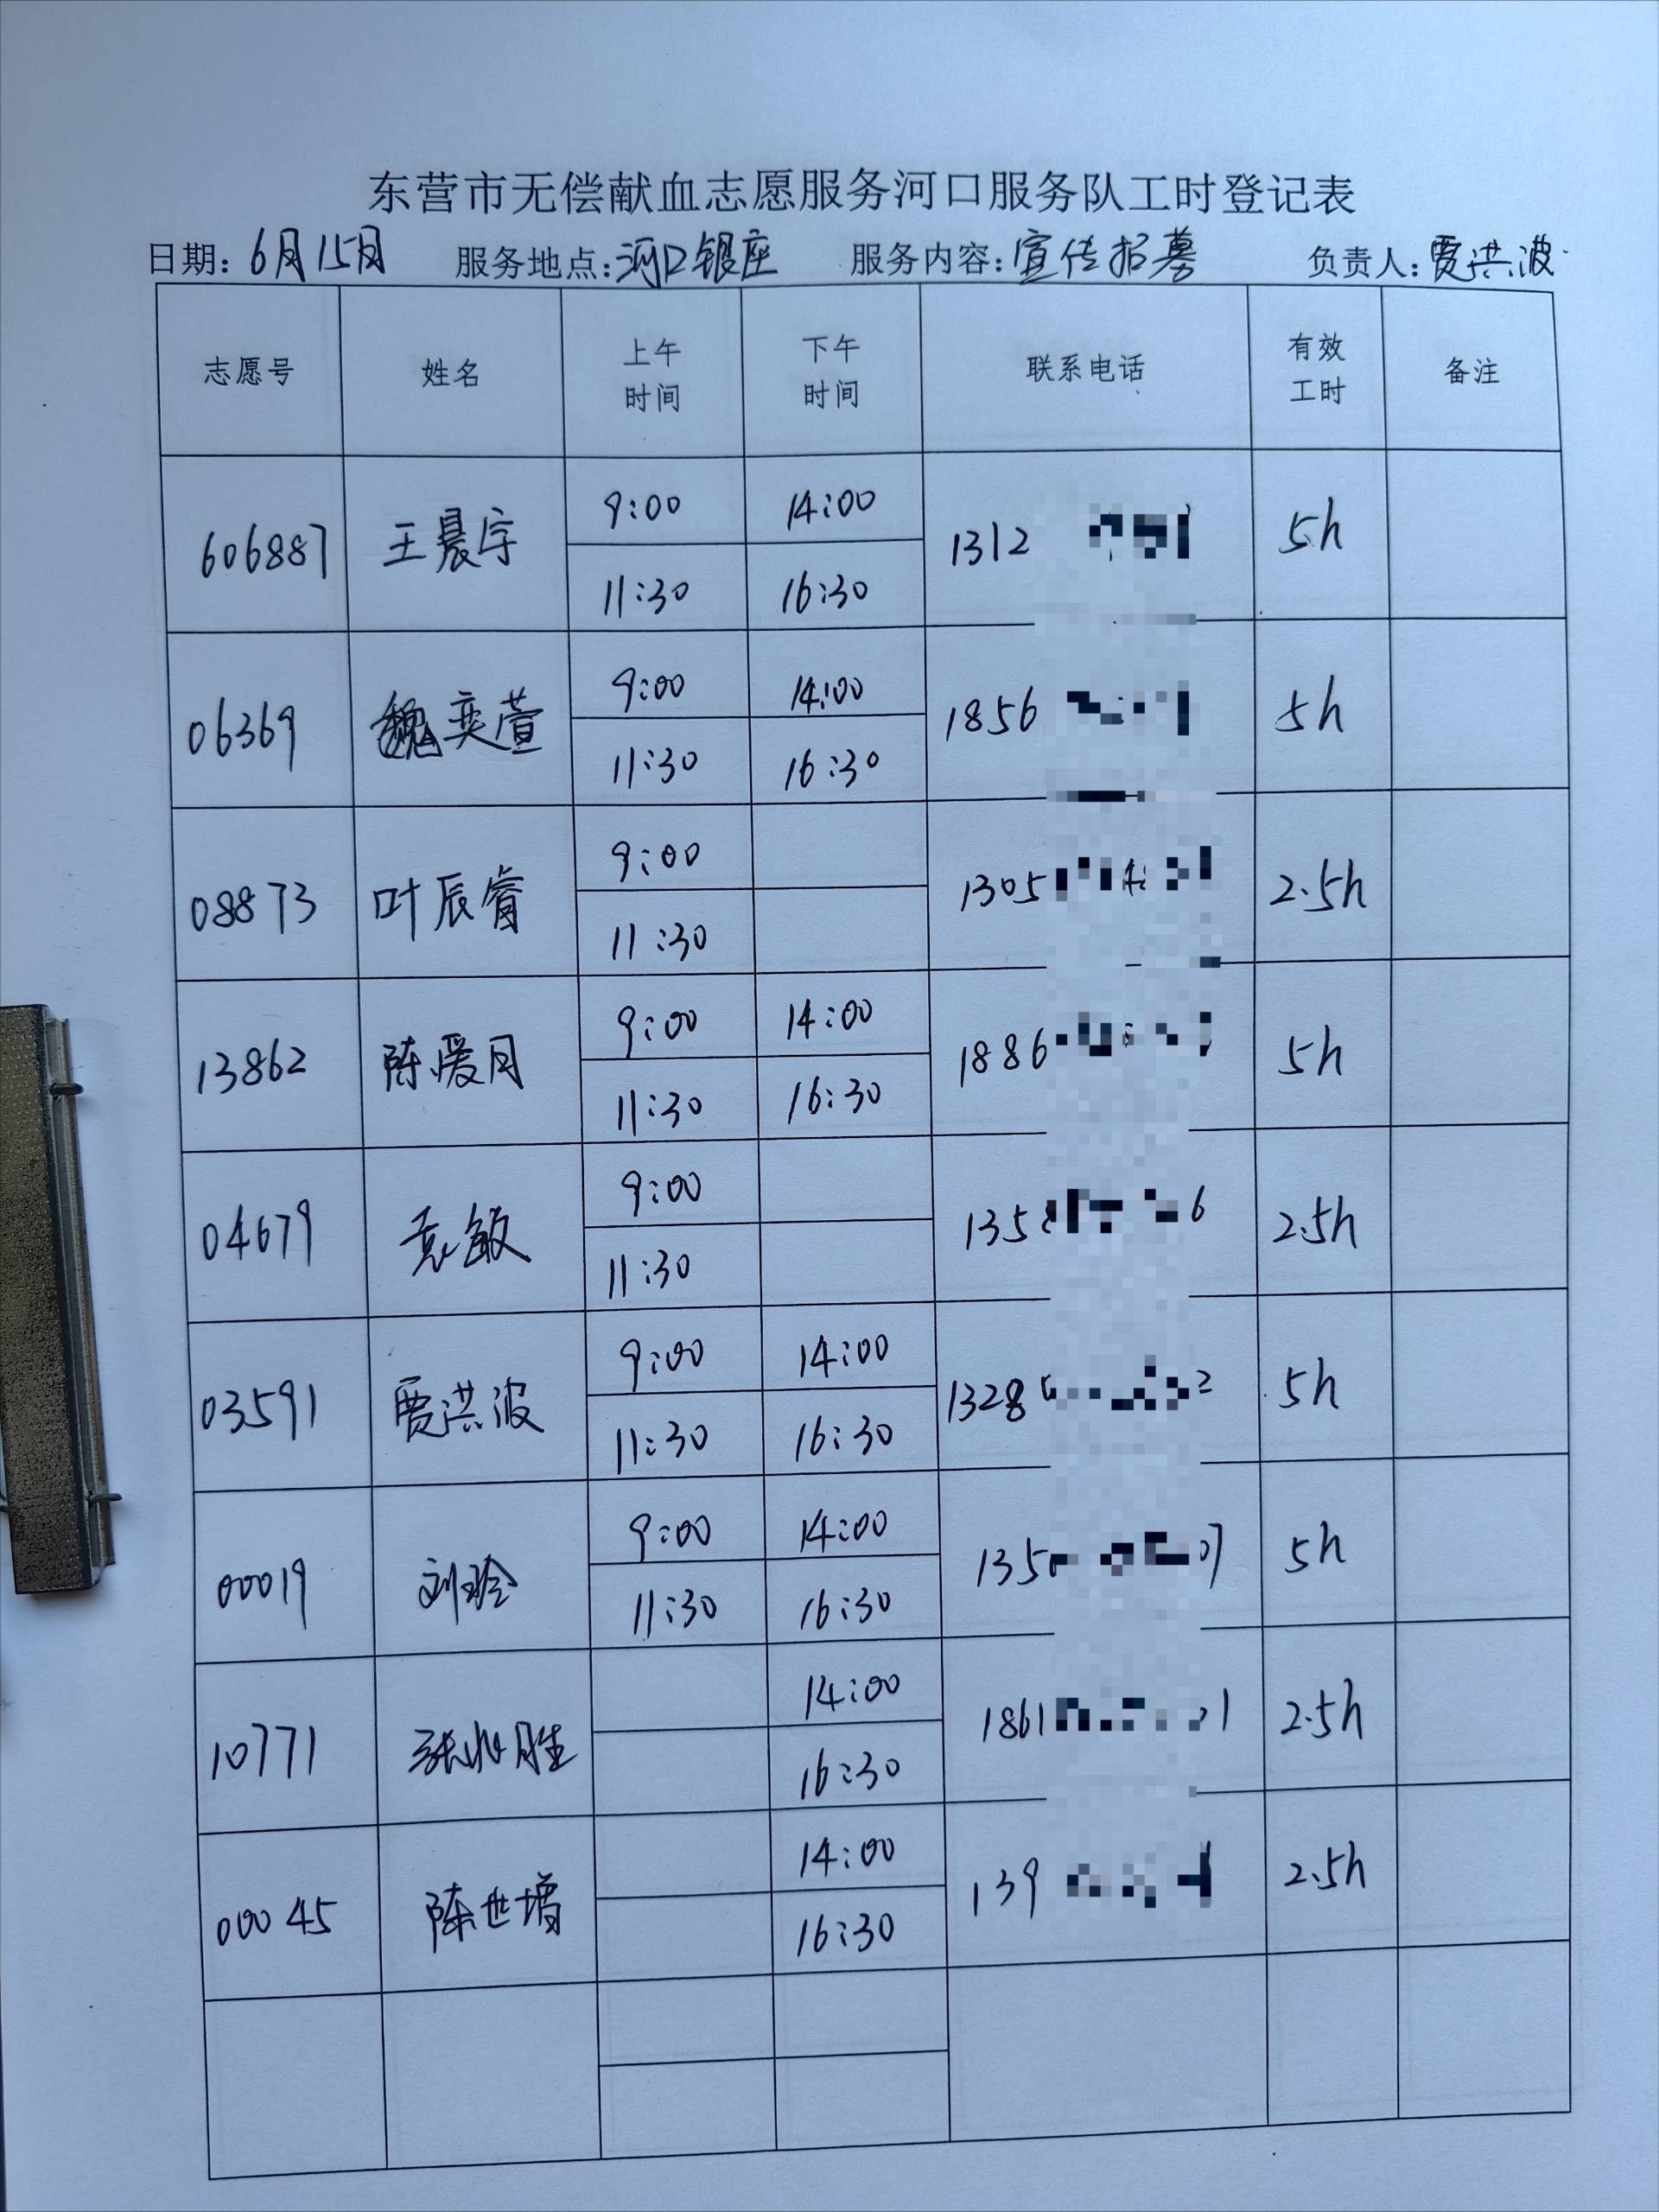 东营市无偿献血志愿服务河口服务队工时登记表
日期: 6月15日 服务地点: 河口银座 服务内容: 宣传招募 负责人: 贾洪波
志愿号 姓名 上午时间 下午时间 联系电话 有效工时 备注
606887 王晨宇 9:00 14:00 1312 5h
11:30 16:30
06369 魏奕萱 9:00 14:00 1856 5h
11:30 16:30
08873 叶辰睿 9:00 1305 2.5h
11:30
13862 陈爱月 9:00 14:00 1886 5h
11:30 16:30
04679 袁敏 9:00 135 6 2.5h
11:30
03591 贾洪波 9:00 14:00 1328 2 5h
11:30 16:30
00019 刘玲 9:00 14:00 135 07 5h
11:30 16:30
10771 张 胜 14:00 1861 1 2.5h
16:30
00045 陈世增 14:00 139 2.5h
16:30